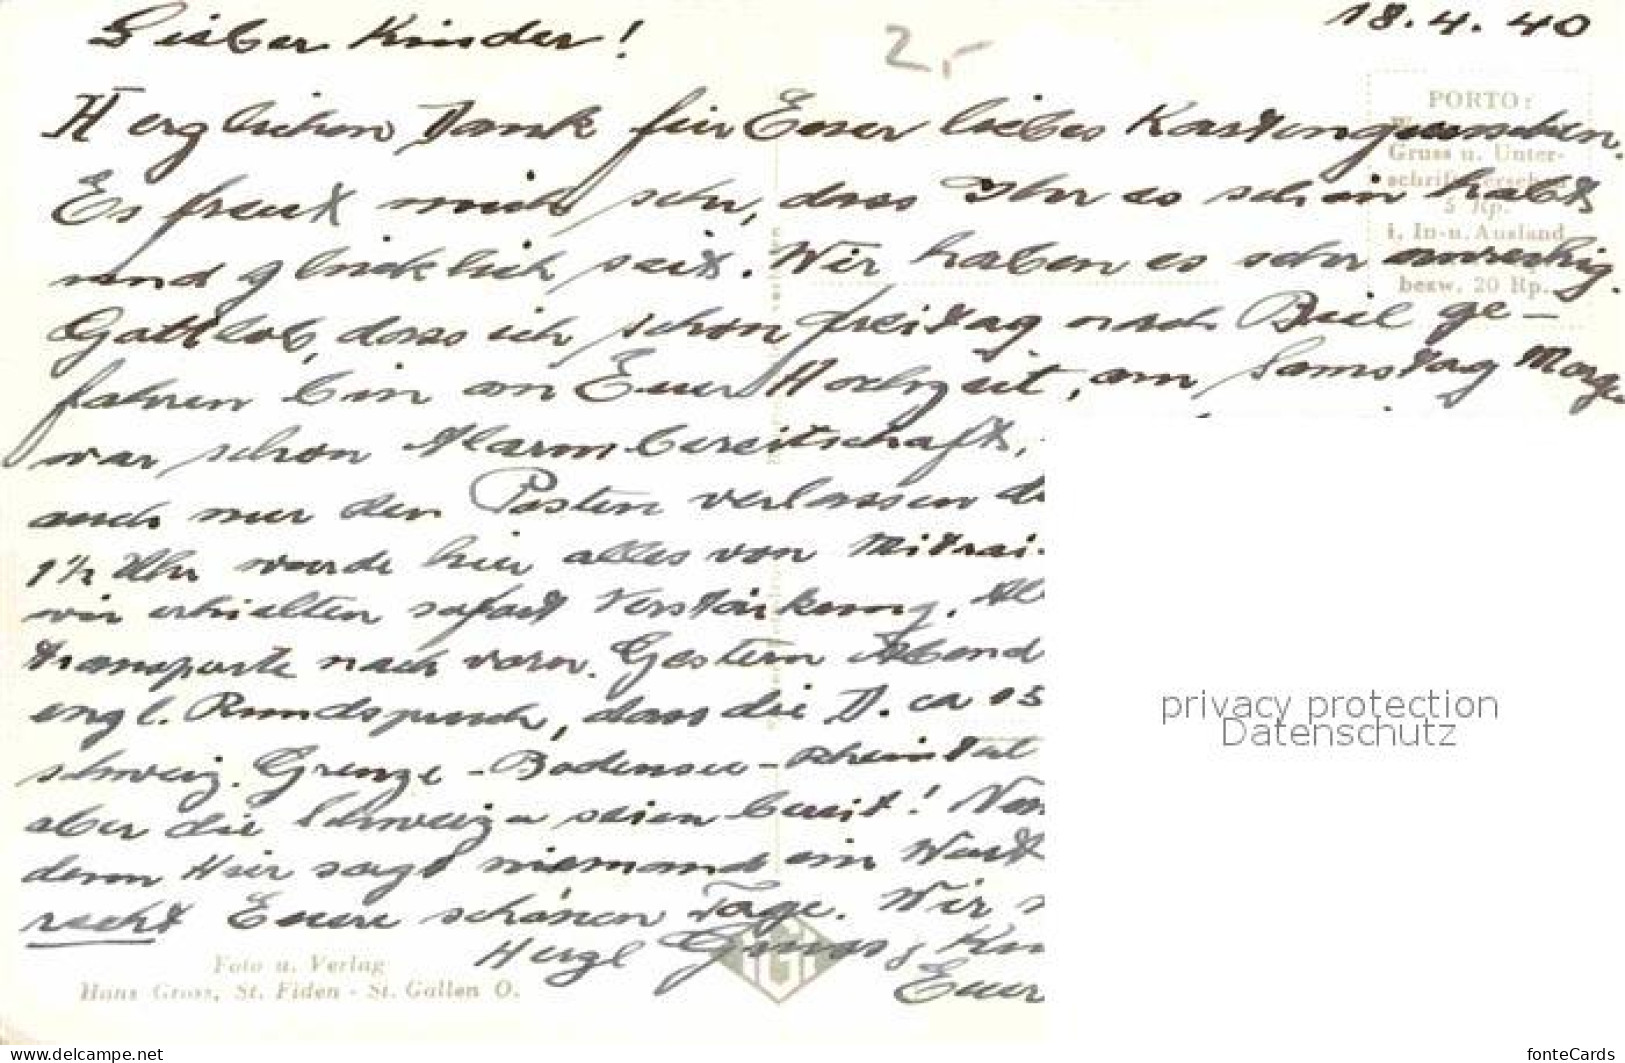 18.4.40
Lieber Kinder!
2,-
Herzlichen Dank für Euer liebes Kartengrüsschen.
Es freut mich sehr, dass Ihr es schön habt
und glücklich seit. Wir haben es sehr unruhig.
Gottlob, dass ich schon freitag nach Biel ge-
fahren bin an Euer Hochzeit, am Samstag Morge
war schon Alarmbereitschaft,
auch nur den Posten verlassen d
1½ Uhr wurde hier alles von Mitrai-
wir erhielten sofort Verstärkung. Al
transporte nach vorn. Gestern Abend
engl. Rundspruch, dass die D. ca 15
schweiz. Grenze - Bodensee - Rheintal
aber die Schweiz seien bereit!
denn Hier sagt niemand ein Wort
recht Euere schönen Tage. Wir
Herzl Gruss & Kü
Euer
PORTO:
Gruss u. Unter-
5 Rp.
i. In- u. Ausland
bezw. 20 Rp.
Foto u. Verlag
Hans Gross, St. Fiden - St. Gallen O.
privacy protection
Datenschutz
www.delcampe.net
fonteCards